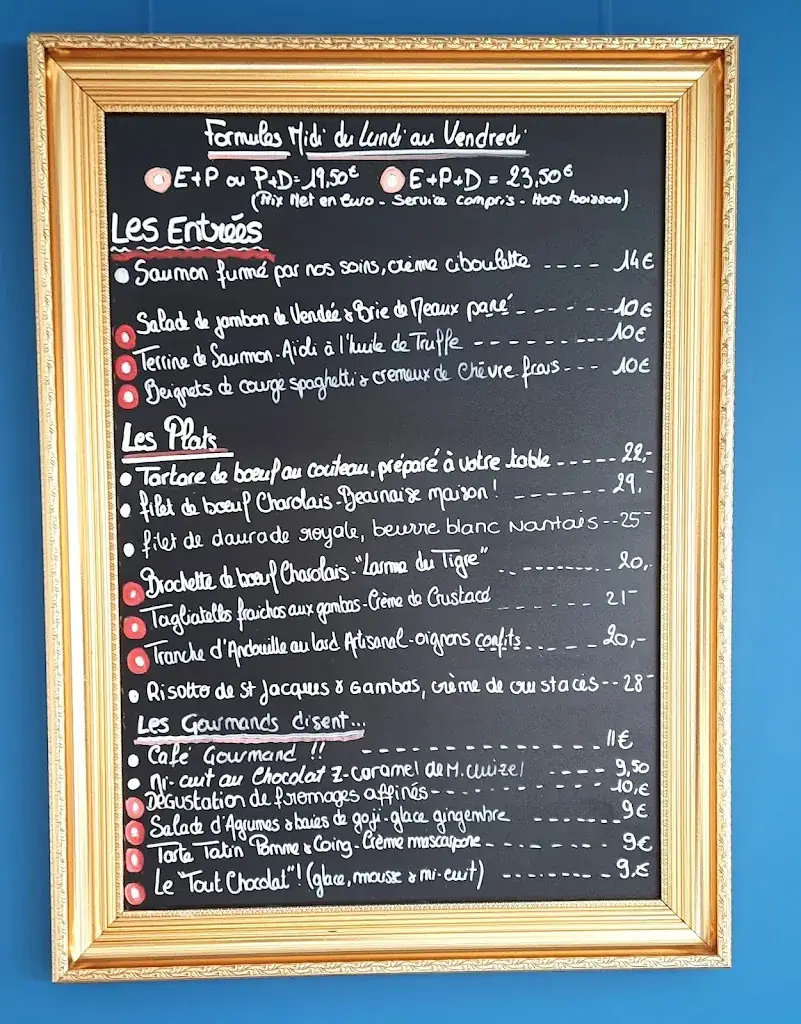 Formules Midi du Lundi au Vendredi
E+P ou P+D = 19,50€ E+P+D = 23,50€
(Prix Net en Euro - Service compris - Hors boisson)
Les Entrées
Saumon fumé par nos soins, crème ciboulette ---- 14€
Salade de jambon de Vendée & Brie de Meaux pané ------ 10€
Terrine de Saumon - Aïoli à l'huile de Truffe -------- 10€
Beignets de courge spaghetti & cremeux de Chèvre frais --- 10€
Les Plats
Tartare de boeuf au couteau, préparé à votre table ----- 22,-
filet de boeuf Charolais - Bearnaise maison ! ------ 29,-
filet de daurade royale, beurre blanc Nantais -- 25-
Brochette de boeuf Charolais - "Larme du Tigre" --------- 20,-
Tagliatelles fraiches aux gambas - Crème de Crustacé ------ 21-
Tranche d'Andouille au lard Artisanal - oignons confits ----- 20,-
Risotto de St Jacques & Gambas, crème de crustacés -- 28-
Les Gourmands disent...
Café Gourmand !! -------------- 11€
Mi-cuit au Chocolat & caramel de M. Cluizel ---- 9,50
Dégustation de fromages affinés ----------- 10,€
Salade d'Agrumes & baies de goji - glace gingembre ------ 9€
Tarte Tatin Pomme & Coing - Crème mascarpone -------- 9€
Le "Tout Chocolat" ! (glace, mousse & mi-cuit) -------- 9,€